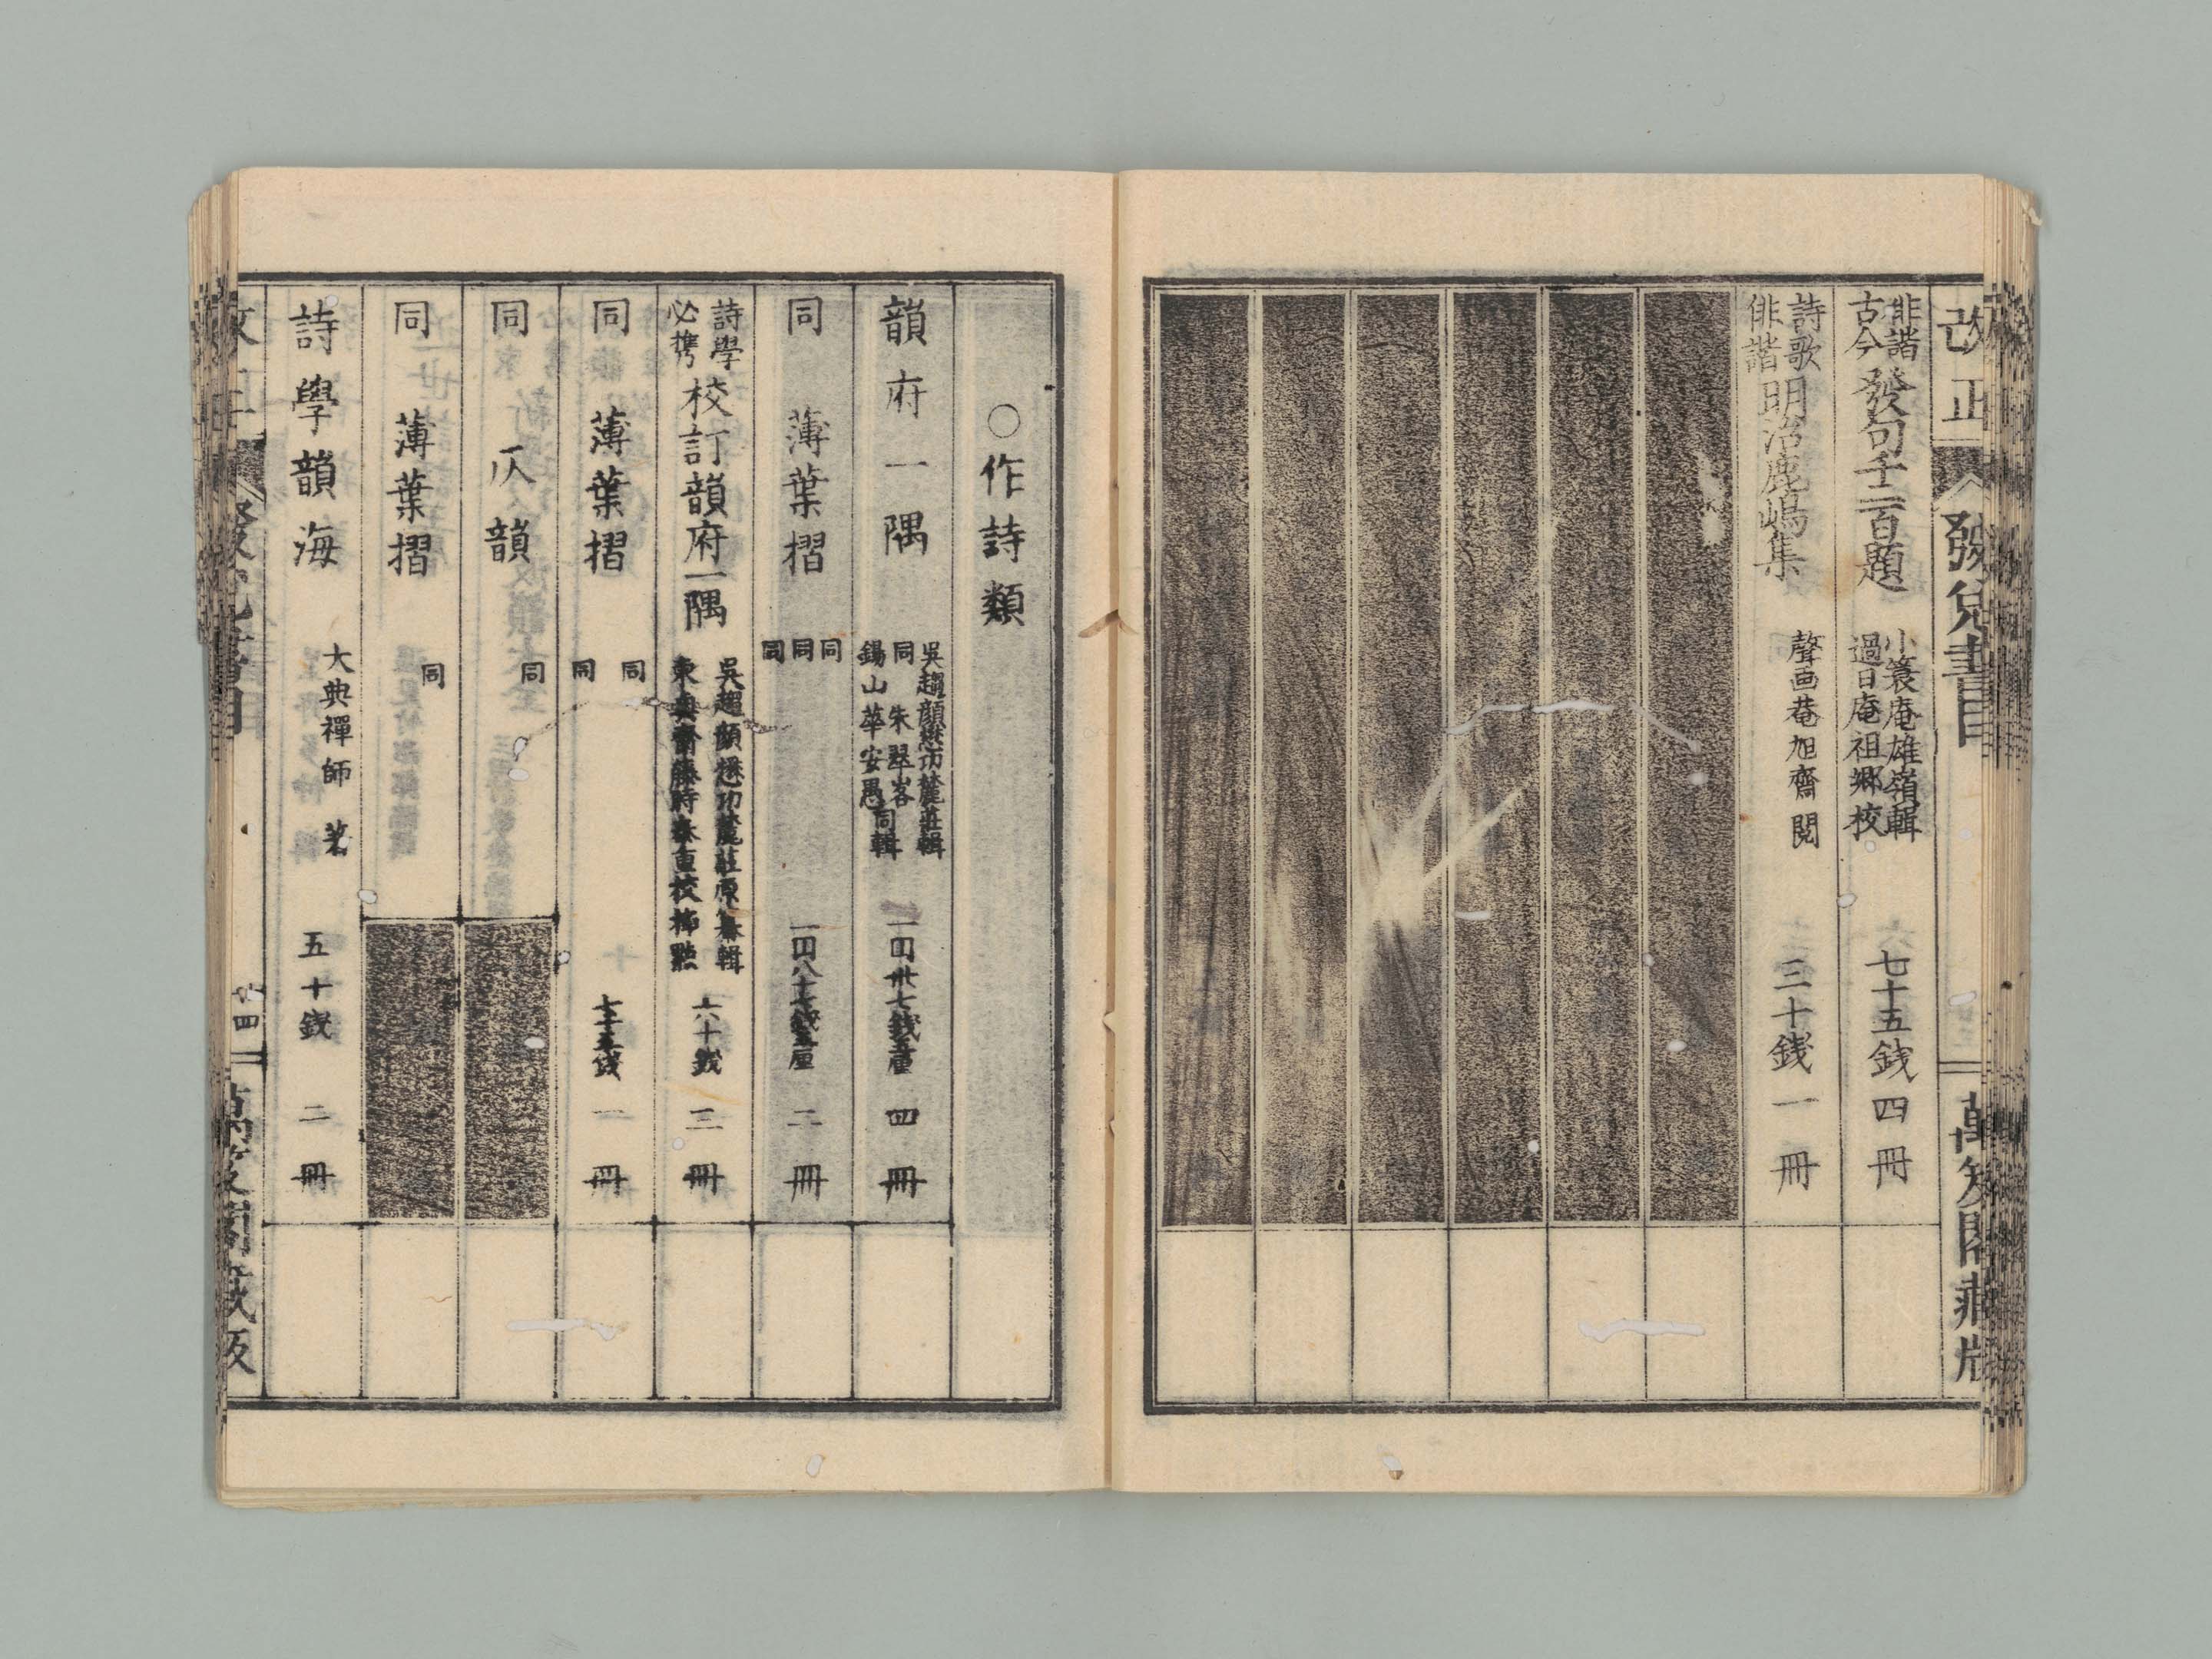 改正
發兌書目
萬笈閣藏版
俳諧
古今
發句千二百題
小簑庵雄嶺輯
過日庵祖郷校
七十五銭
四冊
詩歌
俳諧
明治鹿嶋集
聲画菴旭齋閲
三十銭
一冊
○作詩類
韻府一隅
呉趨顔懋功麓莊輯
同 朱翠峯
錫山華安愚
同輯
一円卅七銭五厘
四冊
同 薄葉摺
同
同
同
一円八十七銭五厘
二冊
詩學
必携
校訂韻府一隅
呉趨顔懋功麓莊原纂輯
東奥齋藤時泰重校補點
六十銭
三冊
同 薄葉摺
同
同
七十五銭
一冊
同 仄韻
同
同 薄葉摺
同
詩學韻海
大典禪師著
五十銭
二冊
廿四